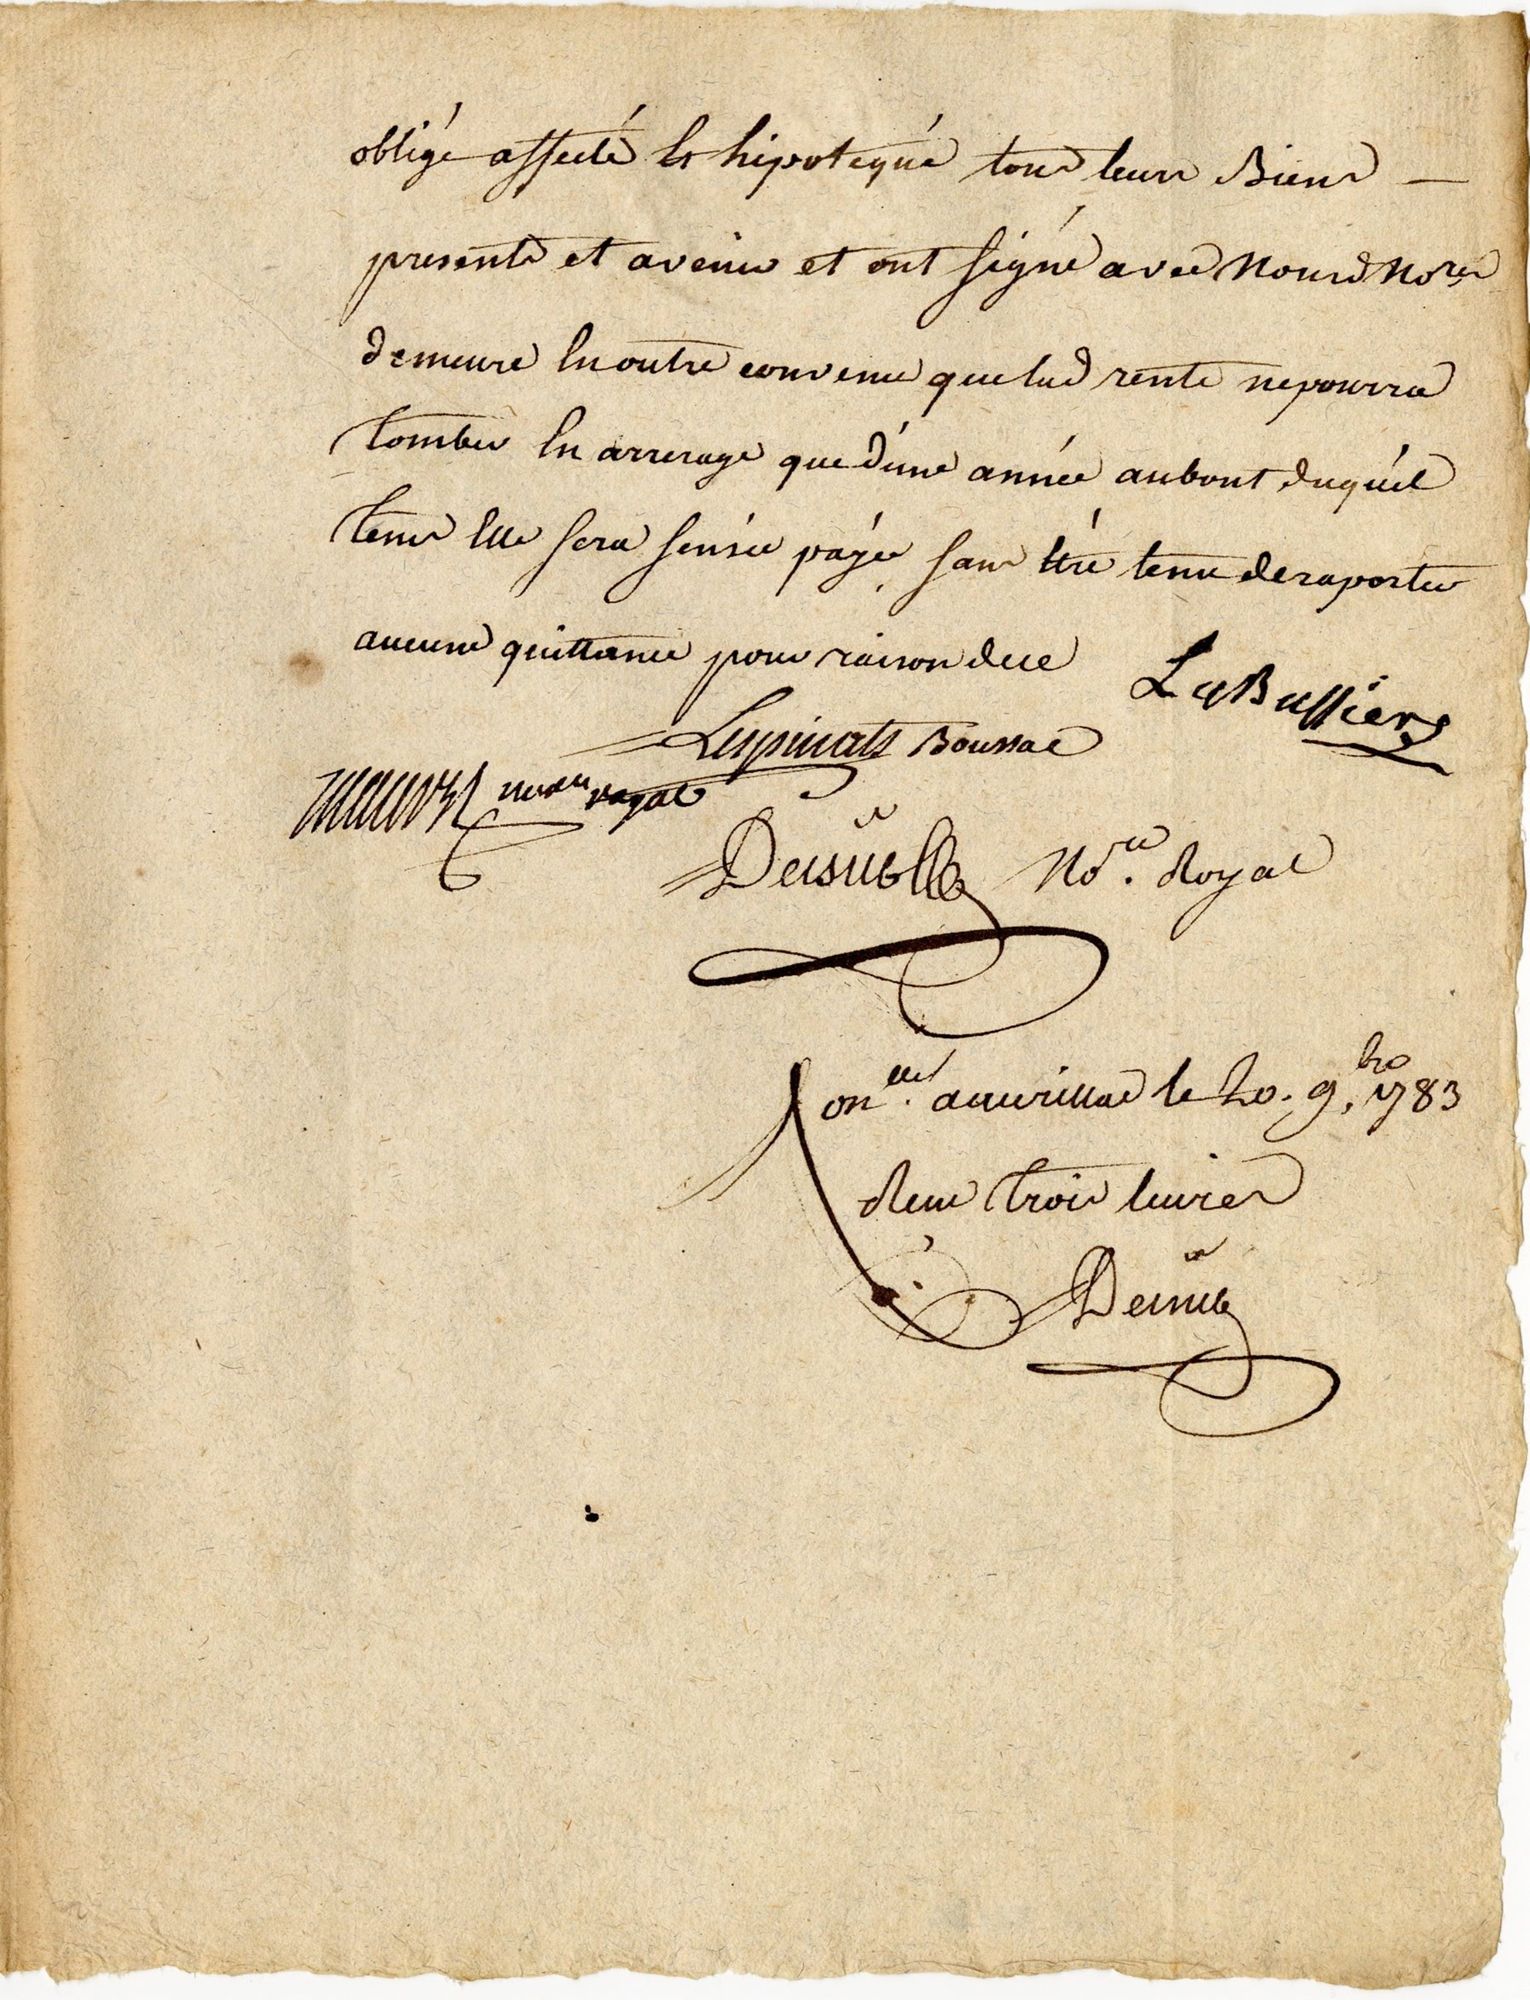 obligé affecté et hipotequé tous leurs Biens —
presents et avenir et ont signé avec Nousd Nores
demeure en outre convenu que lad rente ne pourra
tomber en arrerage que d'une année aubout duquél
tems elle sera sensée payée sans étre tenu de raporter
aucune quittance pour raison de ce
LaBussiere
Lespinats Boussac
royal
No.re Royal
Con.llé a aurillac le 20. 9.bre 1783
Reçu trois livres